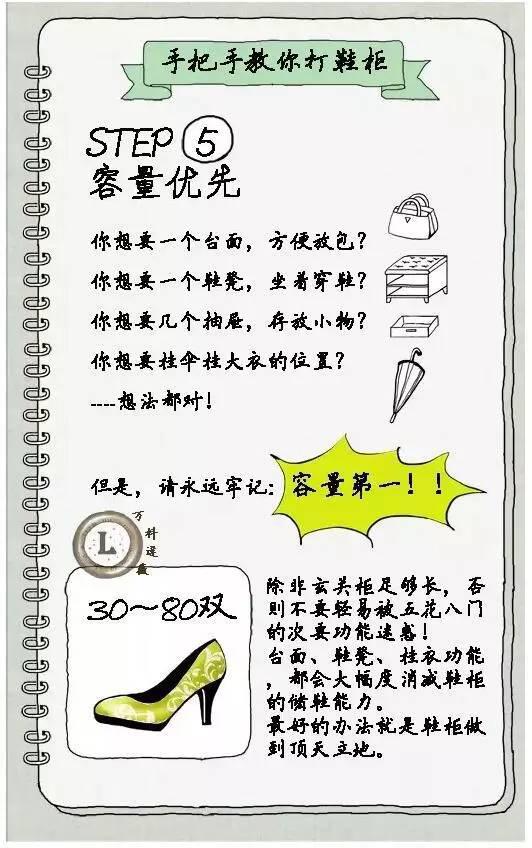 手把手教你打鞋柜
STEP 5
容量优先
你想要一个台面，方便放包？
你想要一个鞋凳，坐着穿鞋？
你想要几个抽屉，存放小物？
你想要挂伞挂大衣的位置？
----想法都对！
但是，请永远牢记：容量第一！！
万科遥薇
L
30～80双
除非玄关柜足够长，否
则不要轻易被五花八门
的次要功能迷惑！
台面、鞋凳、挂衣功能
，都会大幅度消减鞋柜
的储鞋能力。
最好的办法就是鞋柜做
到顶天立地。